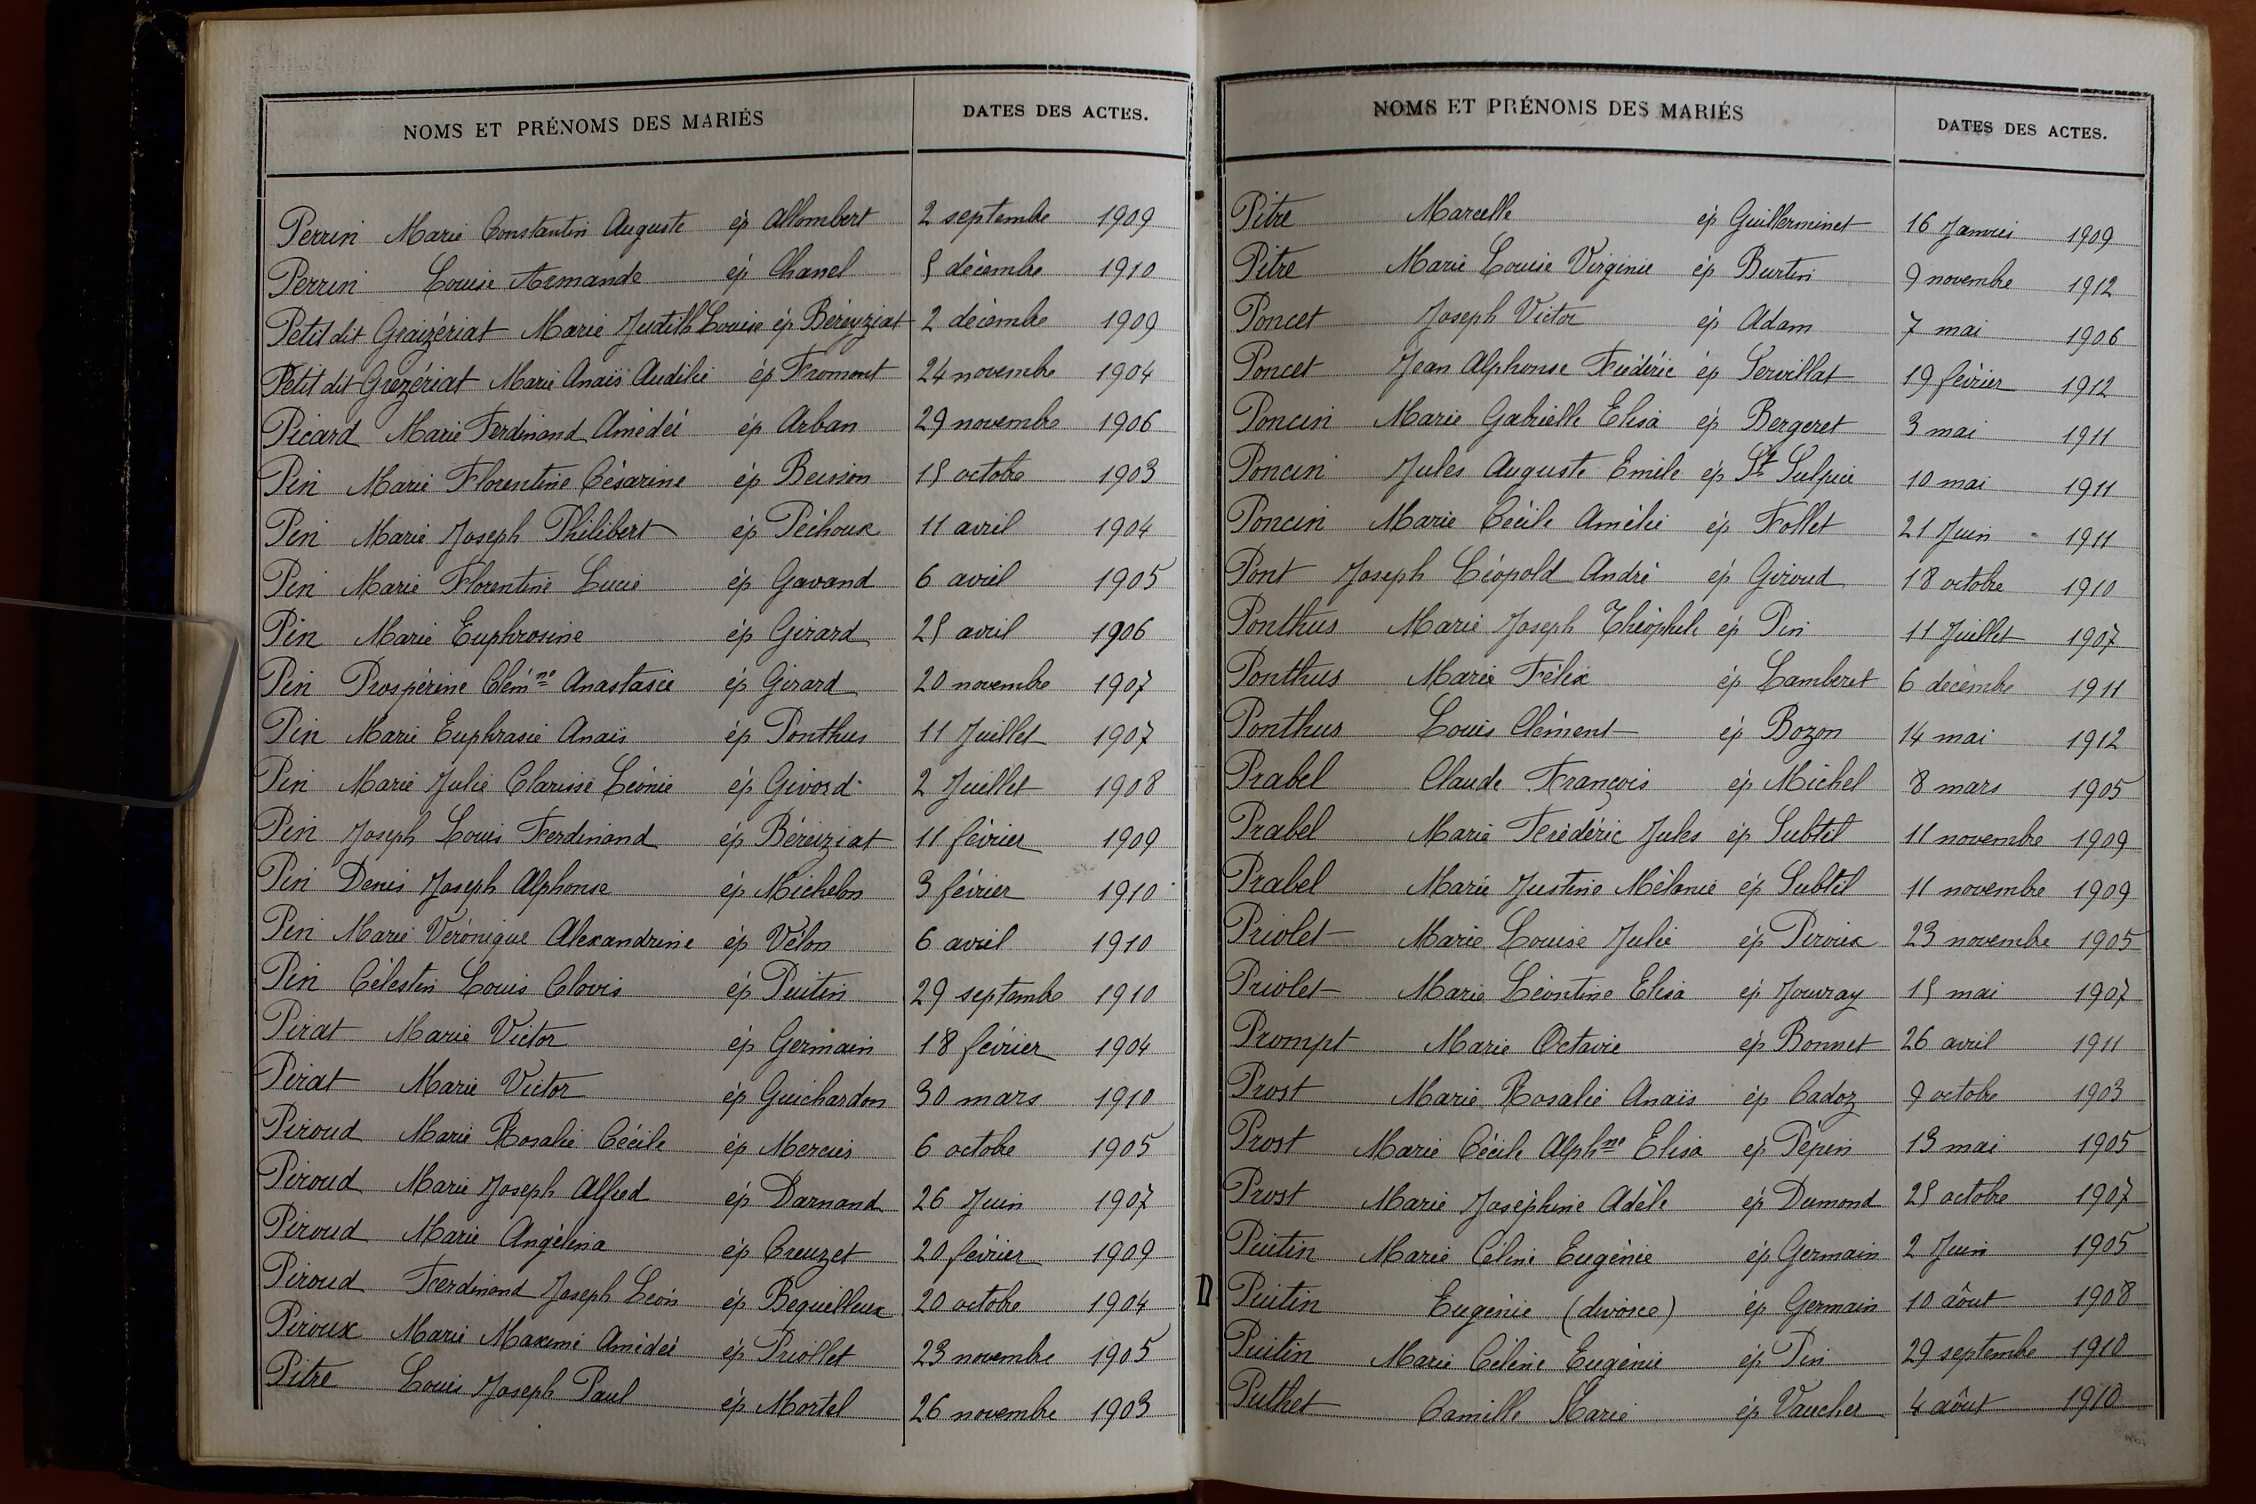 NOMS ET PRÉNOMS DES MARIÉS DATES DES ACTES.
Perrin Marie Constantin Auguste ép Allombert 2 septembre 1909
Perrin Louise Armande ép Chanel 5 décembre 1910
Petit dit Graizériat Marie Judith Louise ép Béreyziat 2 décembre 1909
Petit dit Grezériat Marie Anaïs Audilie ép Fromont 24 novembre 1904
Picard Marie Ferdinand Amédéé ép Arban 29 novembre 1906
Pin Marie Florentine Césarine ép Beisson 15 octobre 1903
Pin Marie Joseph Philibert ép Péchoux 11 avril 1904
Pin Marie Florentine Lucie ép Gavand 6 avril 1905
Pin Marie Euphrosine ép Girard 25 avril 1906
Pin Prospérine Clémne Anastasie ép Girard 20 novembre 1907
Pin Marie Euphrasie Anaïs ép Ponthus 11 Juillet 1907
Pin Marie Julie Clarisse Léonie ép Givord 2 Juillet 1908
Pin Joseph Louis Ferdinand ép Béreiziat 11 février 1909
Pin Denis Joseph Alphonse ép Michelon 3 février 1910
Pin Marie Véronique Alexandrine ép Vélon 6 avril 1910
Pin Célestin Louis Clovis ép Puitin 29 septembre 1910
Pirat Marie Victor ép Germain 18 février 1904
Pirat Marie Victor ép Guichardon 30 mars 1910
Piroud Marie Rosalie Cécile ép Mercier 6 octobre 1905
Piroud Marie Joseph Alfred ép Darnand 26 Juin 1907
Piroud Marie Angélina ép Creuzet 20 février 1909
Piroud Ferdinand Joseph Léon ép Bequilleux 20 octobre 1904
Piroux Marie Maxime Amédéé ép Priollet 23 novembre 1905
Pitre Louis Joseph Paul ép Mortel 26 novembre 1903
NOMS ET PRÉNOMS DES MARIÉS DATES DES ACTES.
Pitre Marcelle ép Guillerminet 16 Janvier 1909
Pitre Marie Louise Virginie ép Burtin 9 novembre 1912
Poncet Joseph Victor ép Adam 7 mai 1906
Poncet Jean Alphonse Frédéric ép Servillat 19 février 1912
Poncin Marie Gabrielle Elisa ép Bergeret 3 mai 1911
Poncin Jules Auguste Emile ép St Sulpice 10 mai 1911
Poncin Marie Cécile Amélie ép Follet 21 Juin 1911
Pont Joseph Léopold André ép Giroud 18 octobre 1910
Ponthus Marie Joseph Théophile ép Pin 11 Juillet 1907
Ponthus Marie Félix ép Lamberet 6 décembre 1911
Ponthus Louis Clément ép Bozon 14 mai 1912
Prabel Claude François ép Michel 8 mars 1905
Prabel Marie Frédéric Jules ép Subtil 11 novembre 1909
Prabel Marie Justine Mélanie ép Subtil 11 novembre 1909
Priolet Marie Louise Julie ép Piroux 23 novembre 1905
Priolet Marie Léontine Elisa ép Jouvray 15 mai 1907
Prompt Marie Octavie ép Bonnet 26 avril 1911
Prost Marie Rosalie Anaïs ép Cadoz 9 octobre 1903
Prost Marie Cécile Alphne Elisa ép Pépin 13 mai 1905
Prost Marie Joséphine Adèle ép Dumond 25 octobre 1907
Puitin Marie Céline Eugénie ép Germain 2 Juin 1905
D Puitin Eugénie (divorce) ép Germain 10 âout 1908
Puitin Marie Céline Eugénie ép Pin 29 septembre 1910
Puthet Camille Marie ép Vaucher 4 âout 1910